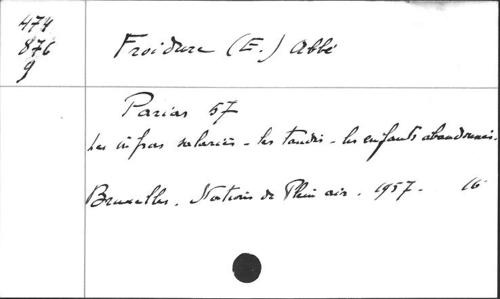 474
876
9
Froidure (E.) Abbé
Parias 57
Les infras salariés - les taudis - les enfants abandonnés.
Bruxelles. Stations de Plein air. 1957. 16